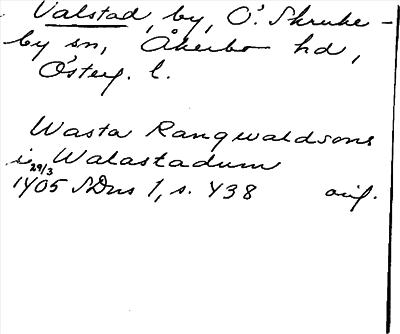 Valstad, by, Ö. Skruke-
by sn, Åkerbo hd,
Österg. l.
Wasta Rangwaldsons
i Walastadum
29/3
1405 SDns 1, s. 438 orig.